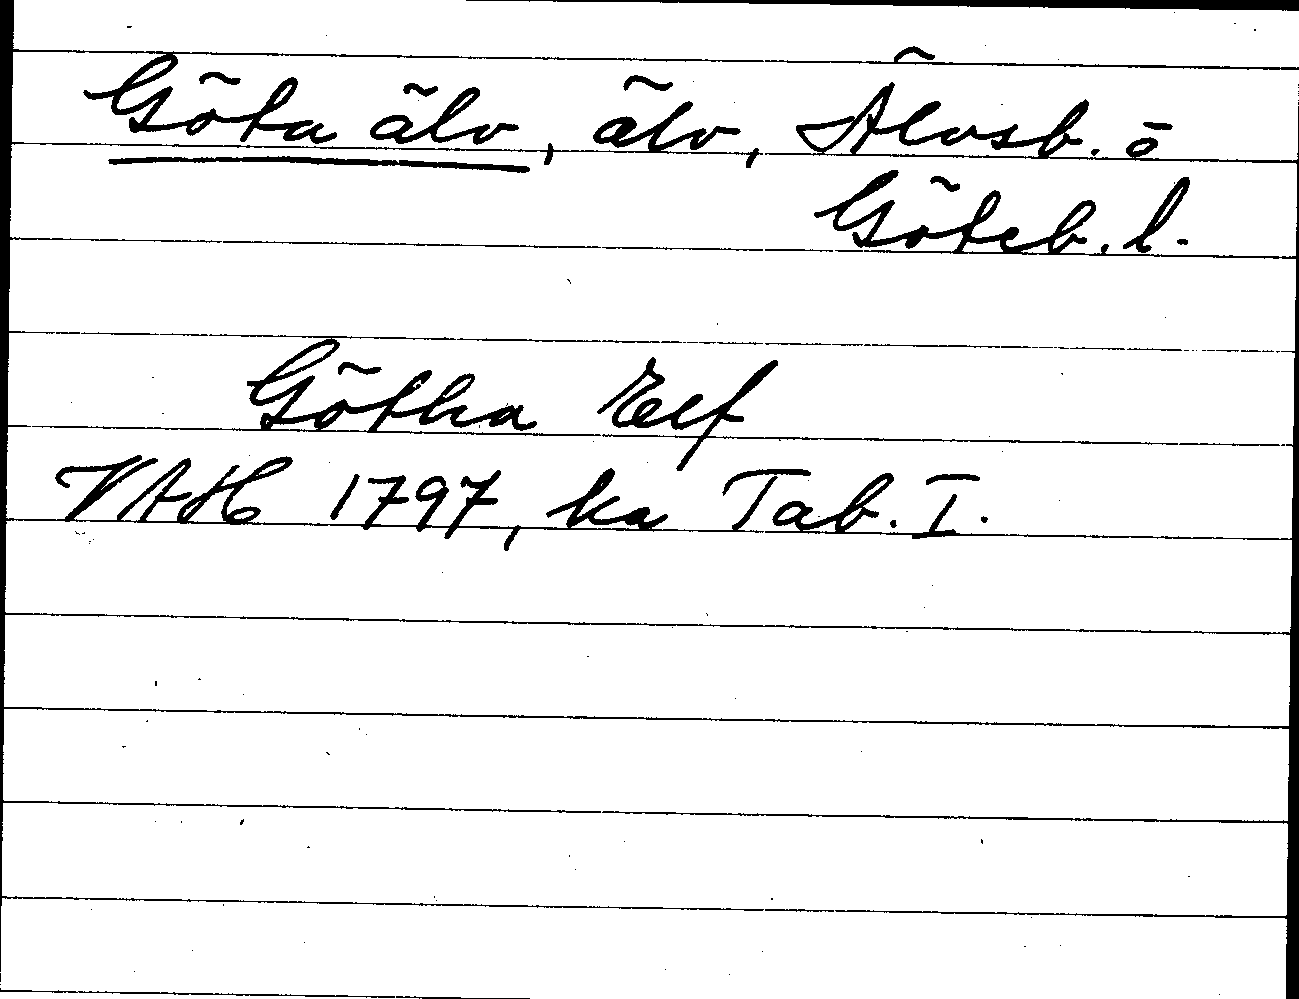 Göta älv, älv, Älvsb. o
Göteb. l.
Götha Elf
VAH 1797, ka Tab. I.